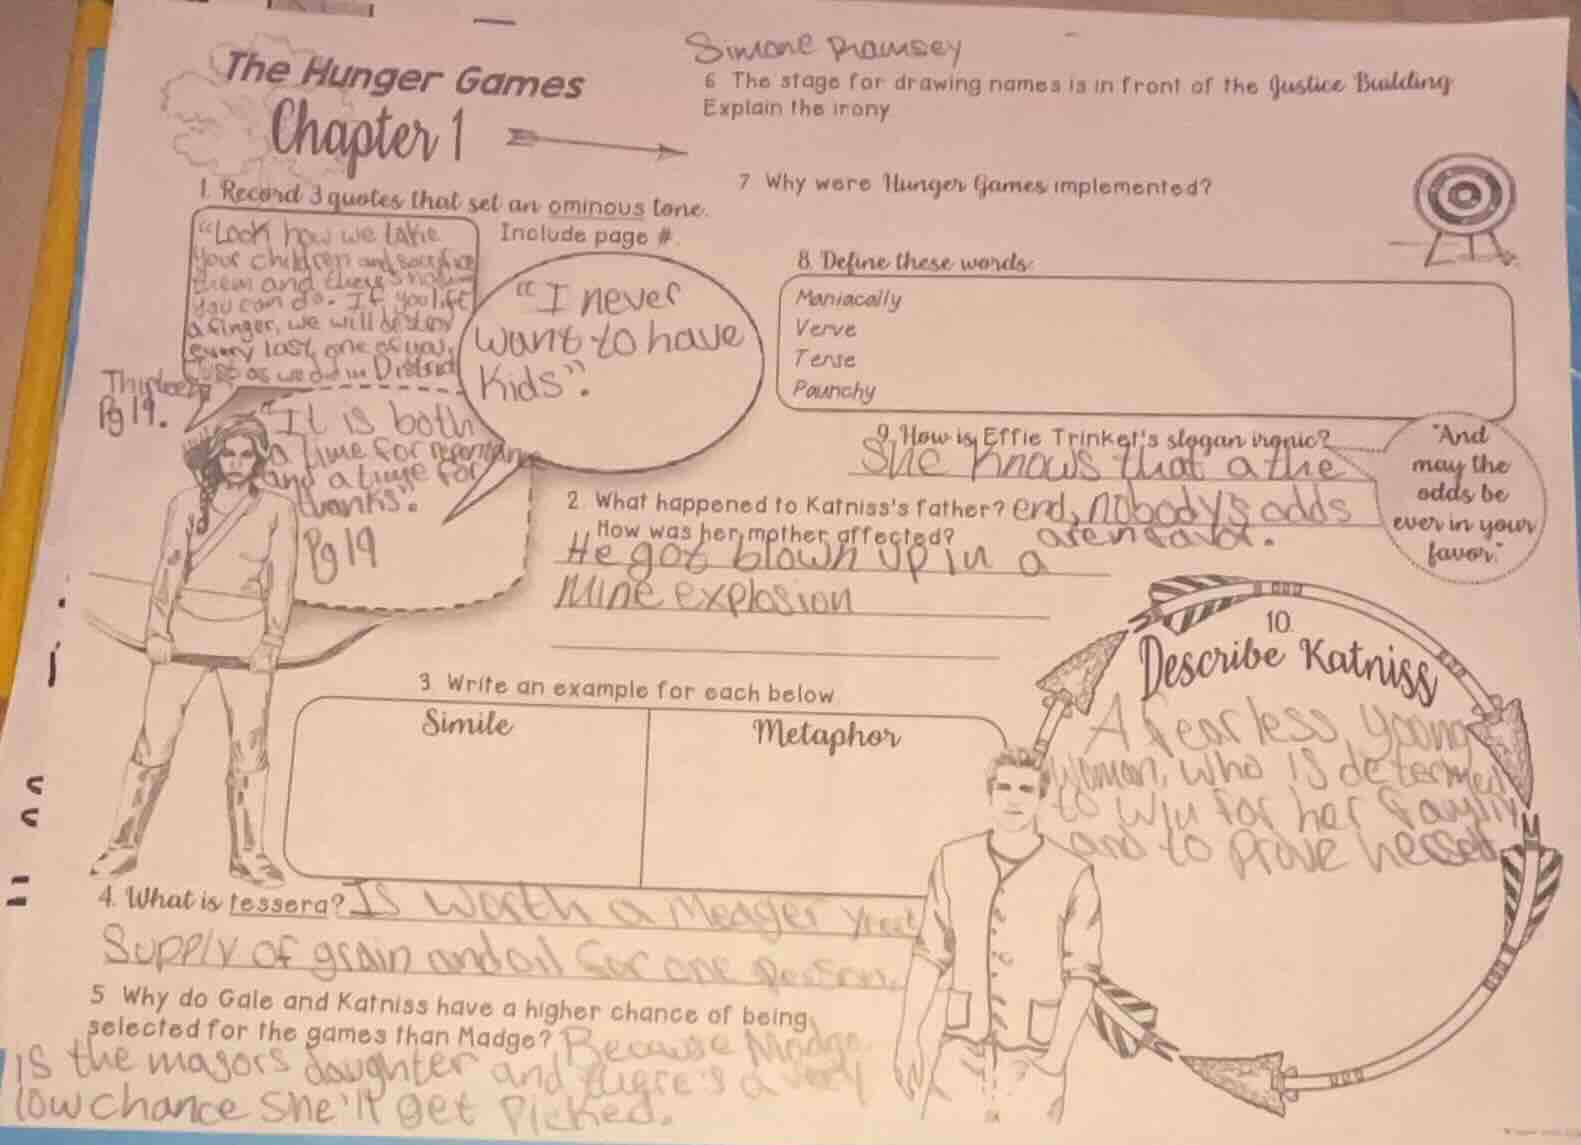 Simone Ramsey
The Hunger Games
Chapter 1
1. Record 3 quotes that set an ominous tone.
Include page #.
"Look how we take
your children and sacrifice
them and theres nothing
you can do. If you lift
a finger, we will destroy
every last one of you,
Just as we did in District
Thirteen
Pg 19.
"I never
want to have
Kids".
"It is both
a time for repentance
and a time for
thanks".
Pg 19
2. What happened to Katniss's father?
How was her mother affected?
He got blown up in a
Mine explosion
3 Write an example for each below
Simile
Metaphor
4. What is tessera? Is worth a Meager year
Supply of grain and oil for one person.
5 Why do Gale and Katniss have a higher chance of being
selected for the games than Madge? Because Madge
is the mayors daughter and there's a very
low chance she'll get picked.
6 The stage for drawing names is in front of the Justice Building
Explain the irony
7 Why were Hunger Games implemented?
8. Define these words:
Maniacally
Verve
Tense
Paunchy
9. How is Effie Trinket's slogan ironic?
She knows that a the
end, nobody's odds
are in favor.
"And
may the
odds be
ever in your
favor."
10.
Describe Katniss
A fearless young
woman, who is determed
to win for her family
and to prove herself